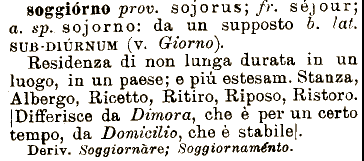 soggiórno prov. sojorus; fr. séjour;
a. sp. sojorno: da un supposto b. lat.
SUB-DIÚRNUM (v. Giorno).
Residenza di non lunga durata in un
luogo, in un paese; e più estesam. Stanza,
Albergo, Ricetto, Ritiro, Riposo, Ristoro.
|Differisce da Dimora, che è per un certo
tempo, da Domicilio, che è stabile|.
Deriv. Soggiornàre; Soggiornaménto.